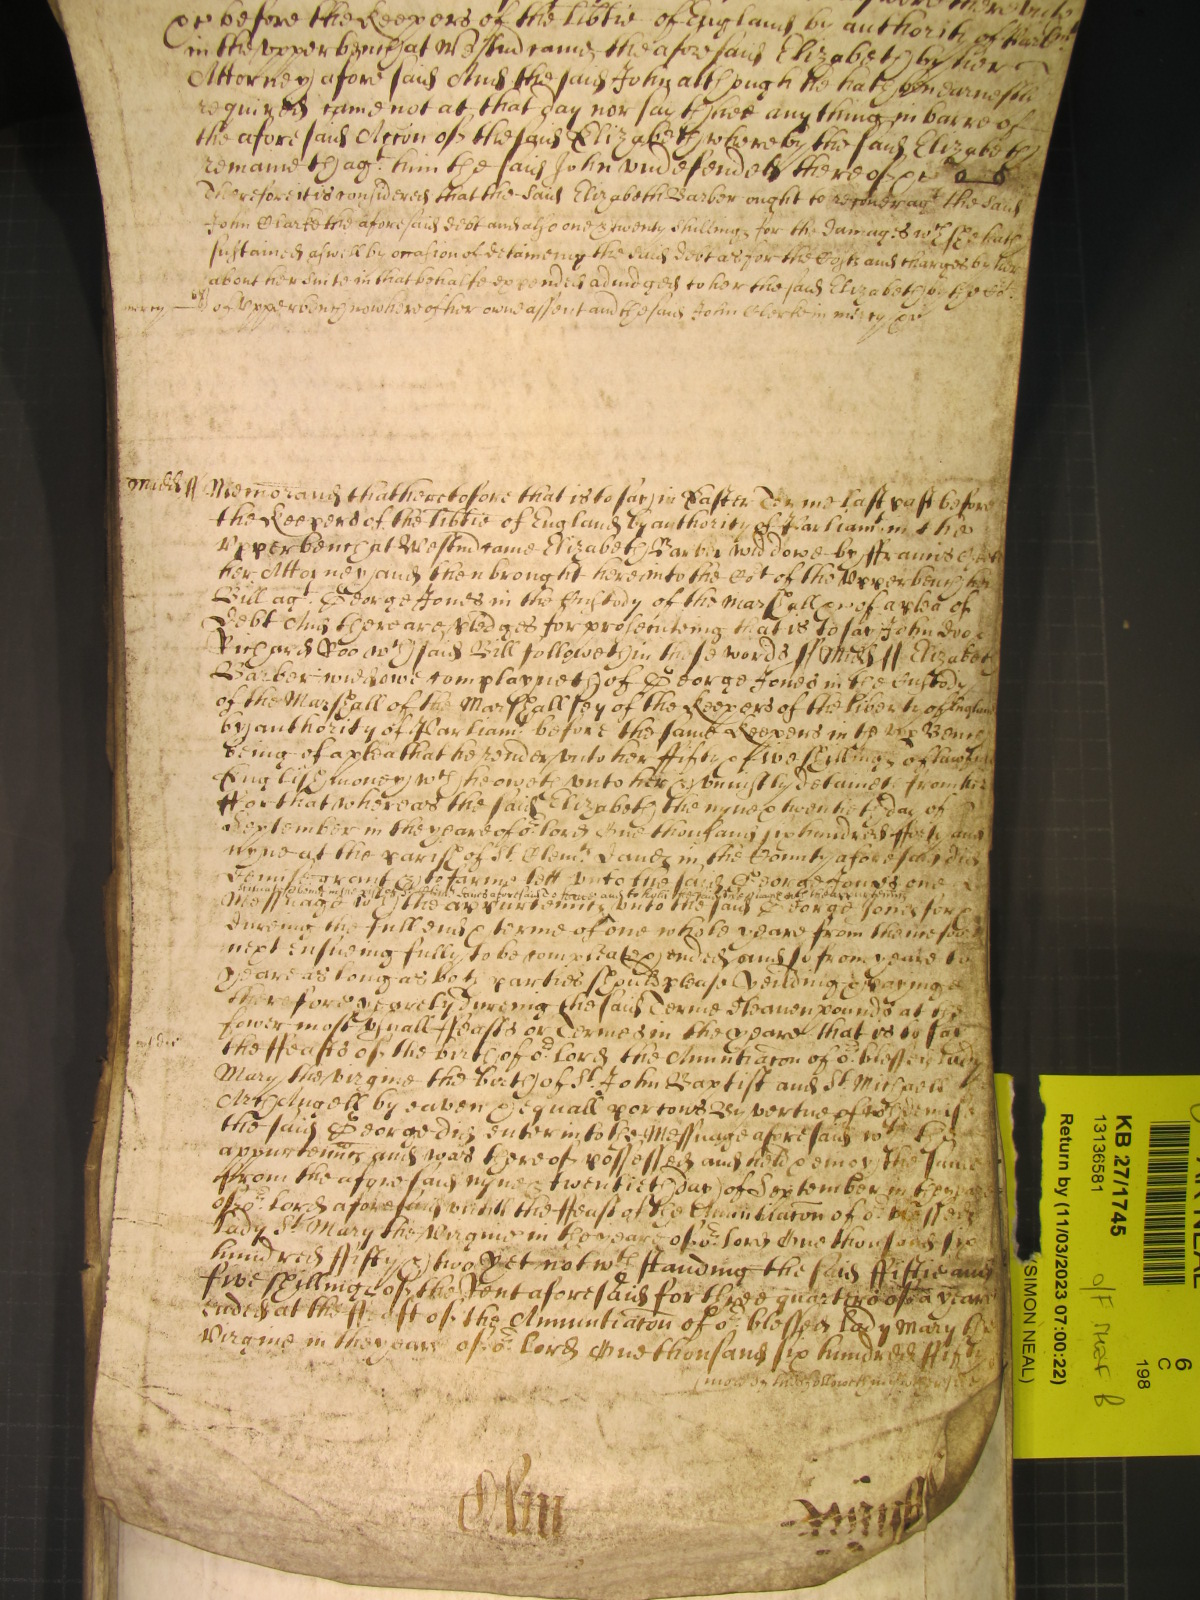 before the Keepers of the libtie of England by authority of Parliamt
in the Upper bench at Westmr came the aforesaid Elizabeth by her
Attorney aforesaid And the said John although he hath been earnestly
required came not at that day nor say there any thing in barre of
the aforesaid Accon of the said Elizabeth whereby the said Elizabeth
remaineth agt him the said John undefended thereof &c
Therefore it is considered that the said Elizabeth Barber ought to recover agt the said
John Clarke the aforesaid debt and also one & twenty shillings for the damages wch she hath
sustained aswell by occasion of deteineing the said debt as for the Costs and charges by her
about her suite in that behalfe expended adiudged to her the said Elizabeth by the Cort
mercy of Upper bench now here of her owne assent and the said John Clerke in mercy &c
Midds ss Memorand that heretofore that is to say in Easter Terme last past before
the Keepers of the libtie of England by authority of Parliamt in the
Upper bench at Westmr came Elizabeth Barber widdowe by ffrancis
her Attorney and then brought here into the Cort of the Upper bench her
Bill agt George Jones in the Custody of the Marshall &c of a plea of
debt And there are pledges for prosecuteing that is to say John Doo &
Richard Roo wch said Bill followeth in these words ss Midds ss Elizabeth
Barber widdowe complayneth of George Jones in the Custody
of the Marshall of the Marshallsey of the Keepers of the liberty of England
by authority of Parliamt before the same Keepers in the Upp Bench
being of a plea that he render unto her ffifty & five shillings of lawfull
English money wch he oweth unto her & uniustly deteineth from her
ffor that whereas the said Elizabeth the nyne & twentieth day of
September in the yeare of or Lord One thousand six hundred fforty and
nyne at the parish of St Clemts Danes in the County aforesaid did
demise grant & to farme lett unto the said George Jones one
Messuage wth the appurtennces unto the said George Jones for &
dureing the full end & terme of one whole yeare from thence
next ensueing fully to be compleate & ended and so from yeare to
yeare as long as both parties should please Yeilding & payinge
therefore yearely dureing the said Terme Eleaven pounds at the
fower most usuall ffeasts or Termes in the yeare that is to say
the ffeasts of the birth of or Lord the Anuntiacon of or blessed Lady
Mary the Virgine the birth of St John Baptist and St Michaell
Archangell by eaven & equall porcons By vertue of wch demise
the said George did enter into the Messuage aforesaid wth the
appurtennces and was thereof possessed and held & enioyed the same
from the aforesaid nyne & twentieth day of September in the yeare
of or Lord aforesaid untill the ffeast of the Anuntiacon of or blessed
Lady St Mary the Virgine in the yeare of or Lord One thousand six
hundred ffifty & two Yet notwthstanding the said ffiftie and
five shillings of the Rent aforesaid for three quarters of a yeare
ended at the ffeast of the Annuntiacon of or blessed Lady Mary the
Virgine in the yeare of or Lord One thousand six hundred ffifty
KB 27/1745
13136581
Return by (11/03/2023 07:00:22)
(SIMON NEAL)
6
C
198